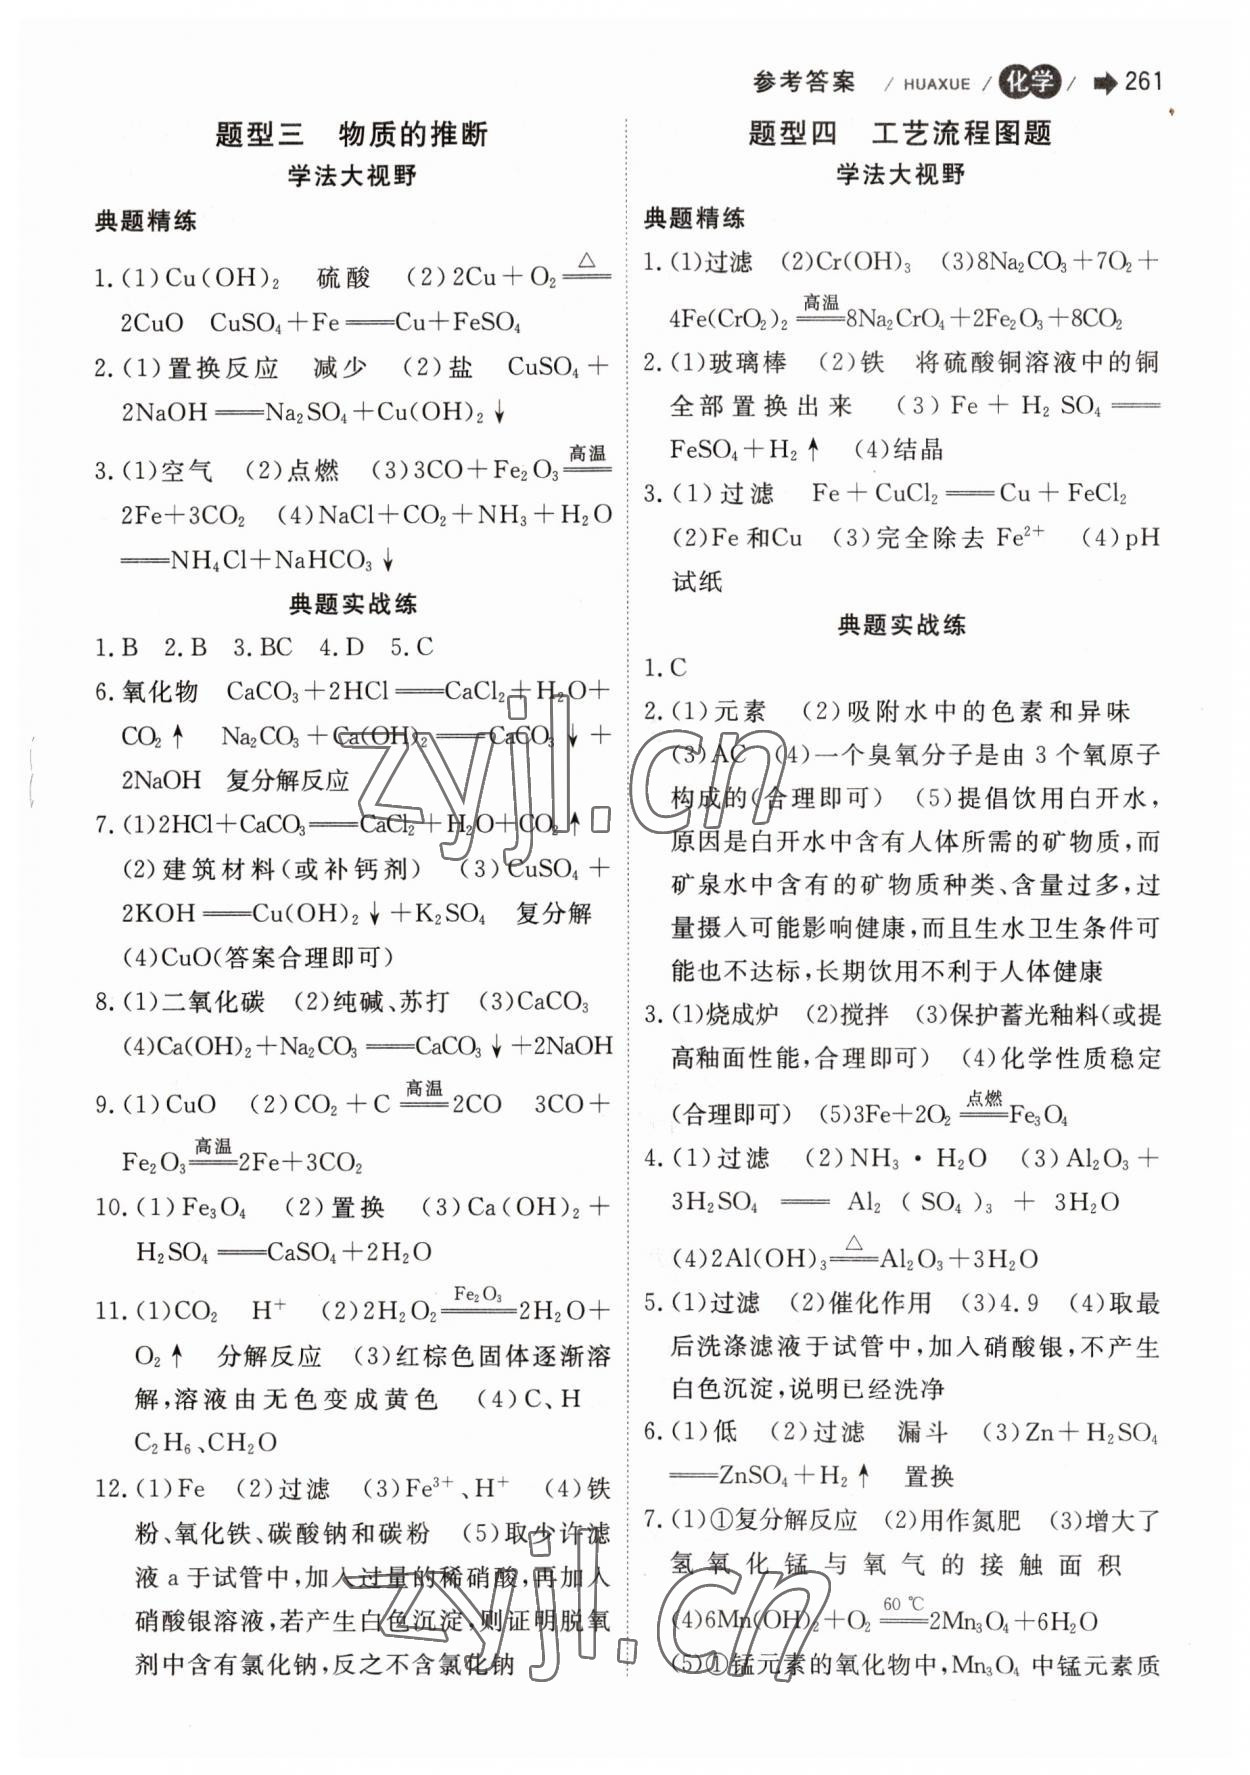 参考答案 / HUAXUE / 化学 / 261
题型三 物质的推断
学法大视野
典题精练
1.(1)Cu(OH)₂ 硫酸 (2)2Cu+O₂ ══△══
2CuO CuSO₄+Fe══Cu+FeSO₄
2.(1)置换反应 减少 (2)盐 CuSO₄+
2NaOH══Na₂SO₄+Cu(OH)₂↓
3.(1)空气 (2)点燃 (3)3CO+Fe₂O₃ ══高温══
2Fe+3CO₂ (4)NaCl+CO₂+NH₃+H₂O
══NH₄Cl+NaHCO₃↓
典题实战练
1.B 2.B 3.BC 4.D 5.C
6.氧化物 CaCO₃+2HCl══CaCl₂+H₂O+
CO₂↑ Na₂CO₃+Ca(OH)₂══CaCO₃↓+
2NaOH 复分解反应
7.(1)2HCl+CaCO₃══CaCl₂+H₂O+CO₂↑
(2)建筑材料(或补钙剂) (3)CuSO₄+
2KOH══Cu(OH)₂↓+K₂SO₄ 复分解
(4)CuO(答案合理即可)
8.(1)二氧化碳 (2)纯碱、苏打 (3)CaCO₃
(4)Ca(OH)₂+Na₂CO₃══CaCO₃↓+2NaOH
9.(1)CuO (2)CO₂+C ══高温══ 2CO 3CO+
Fe₂O₃ ══高温══ 2Fe+3CO₂
10.(1)Fe₃O₄ (2)置换 (3)Ca(OH)₂+
H₂SO₄══CaSO₄+2H₂O
11.(1)CO₂ H⁺ (2)2H₂O₂ ══Fe₂O₃══ 2H₂O+
O₂↑ 分解反应 (3)红棕色固体逐渐溶
解,溶液由无色变成黄色 (4)C、H
C₂H₆、CH₂O
12.(1)Fe (2)过滤 (3)Fe³⁺、H⁺ (4)铁
粉、氧化铁、碳酸钠和碳粉 (5)取少许滤
液 a 于试管中,加入过量的稀硝酸,再加入
硝酸银溶液,若产生白色沉淀,则证明脱氧
剂中含有氯化钠,反之不含氯化钠
题型四 工艺流程图题
学法大视野
典题精练
1.(1)过滤 (2)Cr(OH)₃ (3)8Na₂CO₃+7O₂+
4Fe(CrO₂)₂ ══高温══ 8Na₂CrO₄+2Fe₂O₃+8CO₂
2.(1)玻璃棒 (2)铁 将硫酸铜溶液中的铜
全部置换出来 (3)Fe+H₂SO₄══
FeSO₄+H₂↑ (4)结晶
3.(1)过滤 Fe+CuCl₂══Cu+FeCl₂
(2)Fe 和Cu (3)完全除去 Fe²⁺ (4)pH
试纸
典题实战练
1.C
2.(1)元素 (2)吸附水中的色素和异味
(3)AC (4)一个臭氧分子是由 3 个氧原子
构成的(合理即可) (5)提倡饮用白开水,
原因是白开水中含有人体所需的矿物质,而
矿泉水中含有的矿物质种类、含量过多,过
量摄入可能影响健康,而且生水卫生条件可
能也不达标,长期饮用不利于人体健康
3.(1)烧成炉 (2)搅拌 (3)保护蓄光釉料(或提
高釉面性能,合理即可) (4)化学性质稳定
(合理即可) (5)3Fe+2O₂ ══点燃══ Fe₃O₄
4.(1)过滤 (2)NH₃·H₂O (3)Al₂O₃+
3H₂SO₄ ══ Al₂(SO₄)₃ + 3H₂O
(4)2Al(OH)₃ ══△══ Al₂O₃+3H₂O
5.(1)过滤 (2)催化作用 (3)4.9 (4)取最
后洗涤滤液于试管中,加入硝酸银,不产生
白色沉淀,说明已经洗净
6.(1)低 (2)过滤 漏斗 (3)Zn+H₂SO₄
══ZnSO₄+H₂↑ 置换
7.(1)①复分解反应 (2)用作氮肥 (3)增大了
氢氧化锰与氧气的接触面积
(4)6Mn(OH)₂+O₂ ══60 ℃══ 2Mn₃O₄+6H₂O
(5)①锰元素的氧化物中,Mn₃O₄ 中锰元素质
zyjl.cn
zyjl.cn